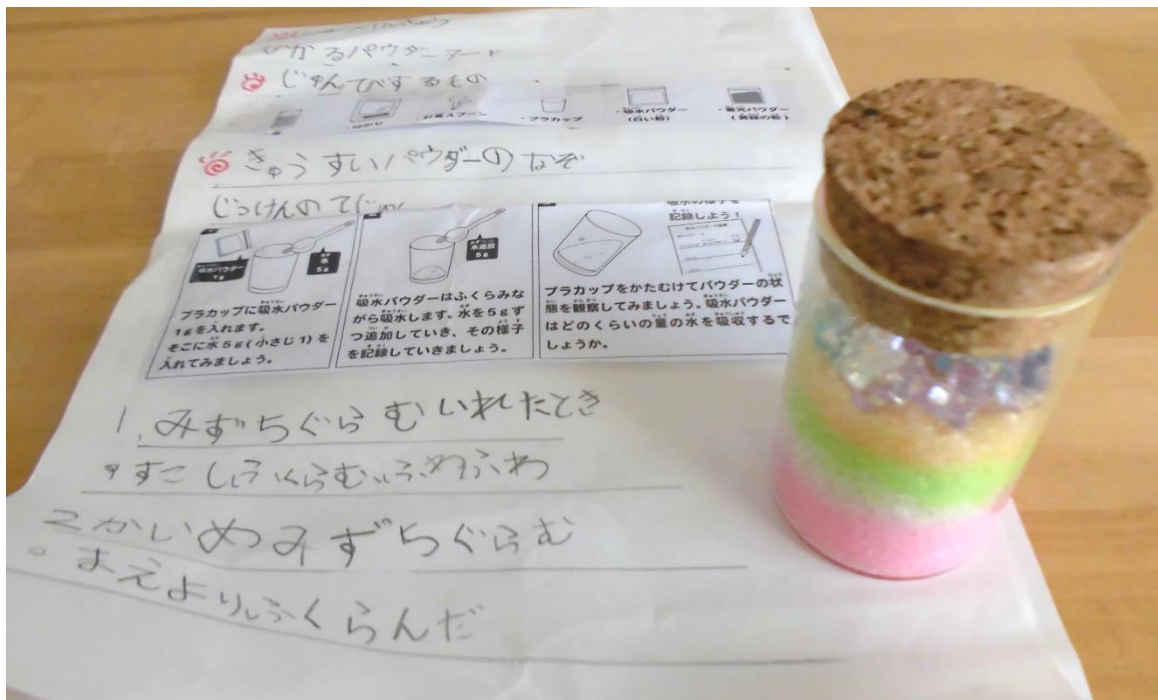 ひかるパウダーアート
じゅんびするもの
・水 ・はかり ・計量スプーン ・プラカップ ・吸水パウダー(白い粉) ・蓄光パウダー(黄緑の粉)
きゅうすいパウダーのなぞ
じっけんのてじゅん
吸水パウダー 1g 水 5g
プラカップに吸水パウダー
1gを入れます。
そこに水5g(小さじ1)を
入れてみましょう。
水追加 5g
吸水パウダーはふくらみな
がら吸水します。水を5gず
つ追加していき、その様子
を記録していきましょう。
吸水の様子を
記録しよう!
プラカップをかたむけてパウダーの状
態を観察してみましょう。吸水パウダー
はどのくらいの量の水を吸収するで
しょうか。
1.みずちぐらむいれたとき
・すこしふくらむ、ふわふわ
2かいめみずちぐらむ
・まえよりふくらんだ